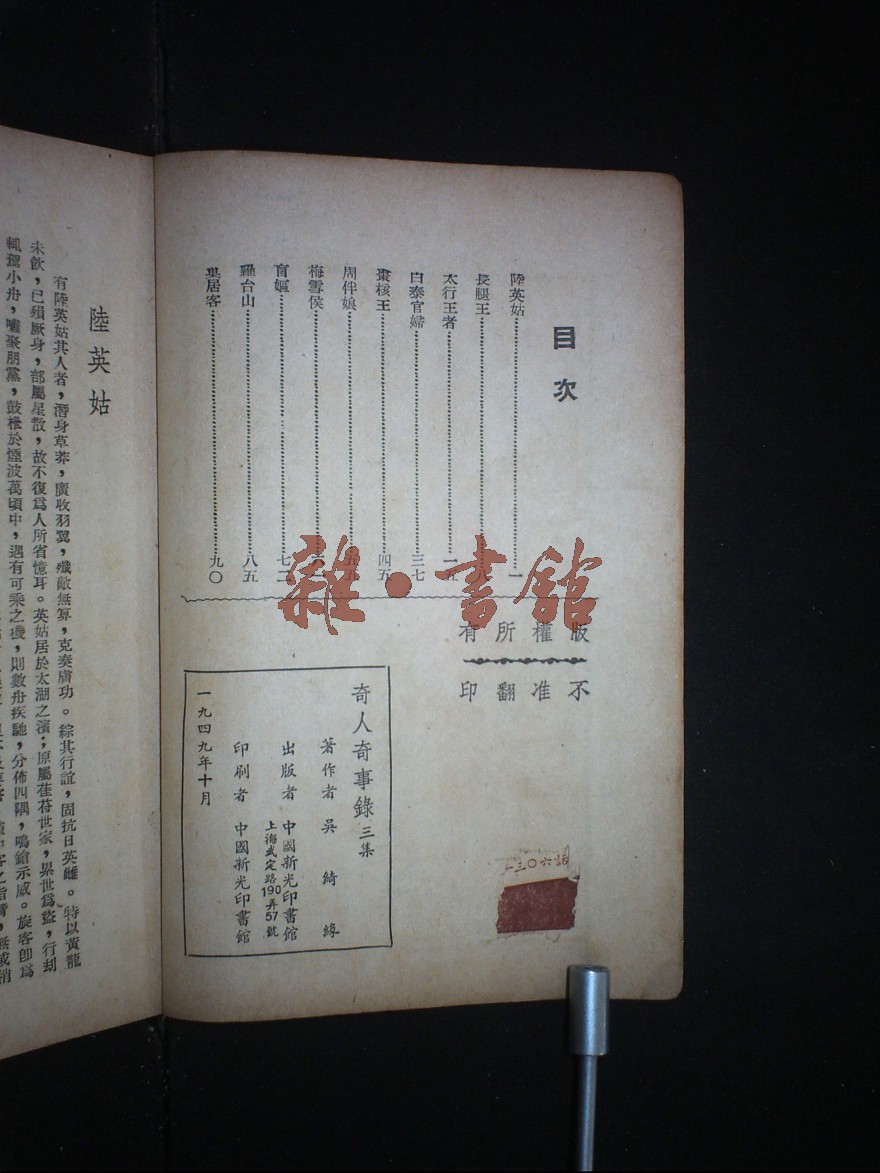 目次
陸英姑……一
長腿王……八
太行王者……一五
白泰官婦……三七
棗核王……四五
周伴娘……五五
梅雪侯……六一
盲嫗……七二
羅台山……八五
巢居客……九〇
版權所有
不准翻印
奇人奇事錄 三集
著作者 吳綺緣
出版者 中國新光印書館
上海武定路190弄57號
印刷者 中國新光印書館
一九四九年十月
雜·書館
陸英姑
有陸英姑其人者，潛身草莽，廣收羽翼，殲敵無算，克奏膚功。綜其行誼，固抗日英雌。特以黃龍
未飲，已殞厥身，部屬星散，故不復爲人所省憶耳。英姑居於太湖之濱；原屬萑苻世家，累世爲盜，行刦
輒駕小舟，嘯聚朋黨，鼓枻於煙波萬頃中，遇有可乘之機，則數舟疾馳，分佈四隅，鳴鎗示威。旋客卽爲